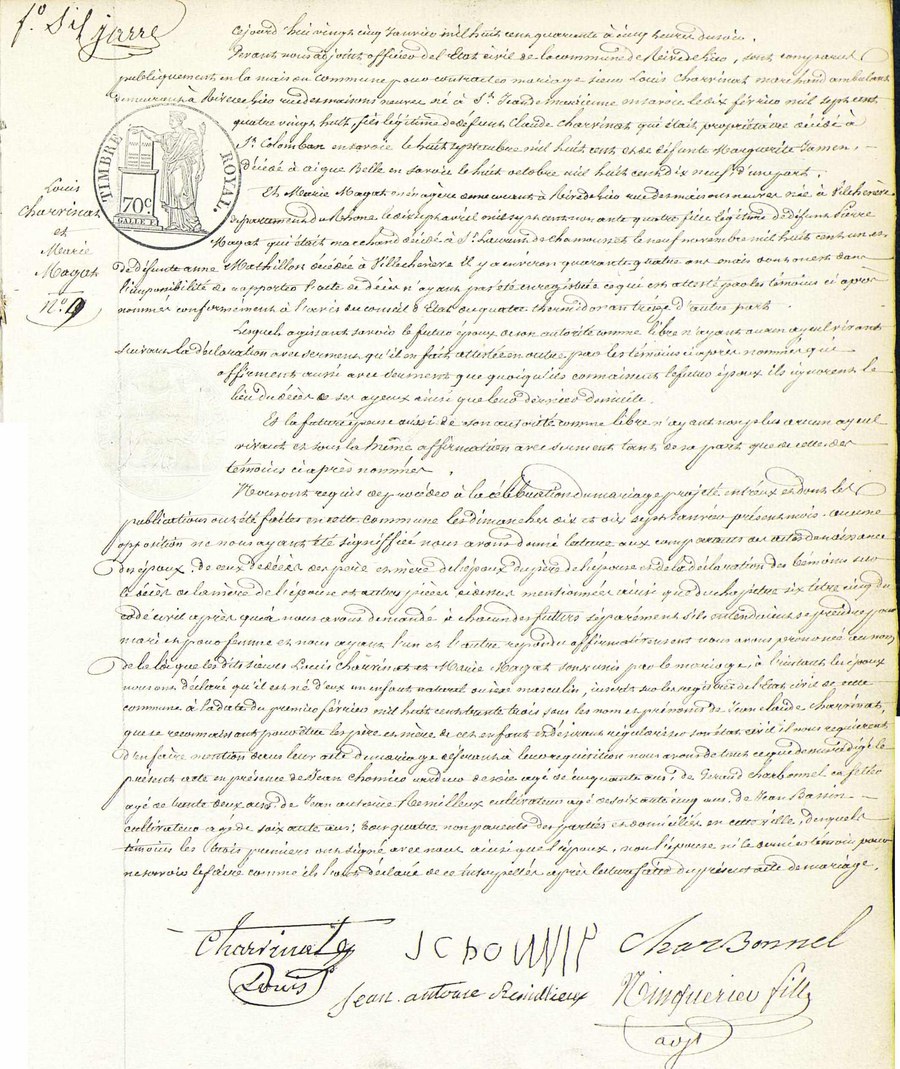 f.º Sil jarre
Cejourd'hui vingt cinq Janvier mil huit cent quarante à cinq heures du soir.
Pardevant nous adjoint officier de l'Etat civil de la commune de Rive de Gier, sont comparus
publiquement en la maison commune pour contracter mariage sieur Louis Charvinat marchand ambulant
demeurant à Rive de Gier rue des maisons neuves né à St Jean de maurienne en savoie le dix février mil sept cent
quatre vingt huit, fils légitime de défunt Claude Charvinat qui était propriétaire décédé à
St Colomban en savoie le huit septembre mil huit cent et de défunte Marguerite Jamen,
décédée à aigue Belle en savoie le huit octobre mil huit cent dix neuf, d'une part.
TIMBRE ROYAL.
70c
GALLE F.
Louis
Charvinat
et
Marie
Magat
Nº 9
Et Marie Magat ménagère demeurant à Rive de Gier rue des maisons neuves née à Villechenève
département du Rhône le dix sept avril mil sept cent soixante quatre fille légitime de défunt Pierre
Magat qui était marchand décédé à St Laurent de Chamousset le neuf novembre mil huit cent un et
de défunte anne Mathillon décédée à Villechenève il y a environ quarante quatre ans mais dont ils sont dans
l'impossibilité de rapporter l'acte de décès n'ayant pas été enregistrée ce qui est attesté par les témoins ci après
nommés conformément à l'avis du conseil d'Etat du quatre thermidor an treize d'autre part.
Lesquels agissant savoir le futur époux de son autorité comme libre n'ayant aucun ayeul vivant
suivant la déclaration avec serment qu'il en fait attestée en outre par les témoins ci après nommés qui
affirment aussi avec serment que quoiqu'ils connaissent le futur époux ils ignorent le
lieu du décès de ses ayeux ainsi que leur dernier domicile.
Et la future épouse aussi de son autorité comme libre n'ayant non plus aucun ayeul
vivant et sous la même affirmation avec serment tant de sa part que de celle des
témoins ci après nommés.
Nous ont requis de procéder à la célébration du mariage projeté entr'eux et dont les
publications ont été faites en cette commune les dimanches dix et dix sept Janvier présent mois. aucune
opposition ne nous ayant été signiffiée nous avons donné lecture aux comparants des actes de naissance
des époux, de ceux de décès des père et mère de l'époux du père de l'épouse et de la déclaration des témoins sur
le décès de la mère de l'épouse et autres pièces ci dessus mentionnées ainsi que du chapitre six titre cinq du
code civil après quoi nous avons demandé à chacun des futurs séparément s'ils entendaient se prendre pour
mari et pour femme et nous ayant l'un et l'autre répondu affirmativement nous avons prononcé au nom
de la loi que lesdits sieurs Louis Charvinat et Marie Magat sont unis par le mariage, à l'instant les époux
nous ont déclaré qu'il est né d'eux un enfant naturel du sexe masculin, inscrit sur les registres de l'Etat civil de cette
commune à la date du premier février mil huit cent trente trois sous les nom et prénoms de Jean Claude Charvinat,
que se reconnaissant pour être les père et mère de cet enfant et désirant régulariser son état civil ils nous requièrent
d'en faire mention dans leur acte de mariage déférant à leur réquisition nous avons de tout ce que dessus rédigé le
présent acte en présence de Jean Chomier cardeur de soie agé de cinquante ans, de Durand Charbonnel cafetier
agé de trente deux ans, de Jean antoine Remilleux cultivateur agé de soixante cinq ans, de Jean Basson
cultivateur agé de soixante ans, tous quatre non parents des parties et domiciliés en cette ville, desquels
témoins les trois premiers ont signé avec nous ainsi que l'époux, non l'épouse ni le dernier témoin pour
ne savoir le faire comme ils l'ont déclaré de ce interpellés après lecture faite du présent acte de mariage.
Charvinat Louis
JCHOMIE
CharBonnel
Jean. antoine Remillieux
fils
adjt